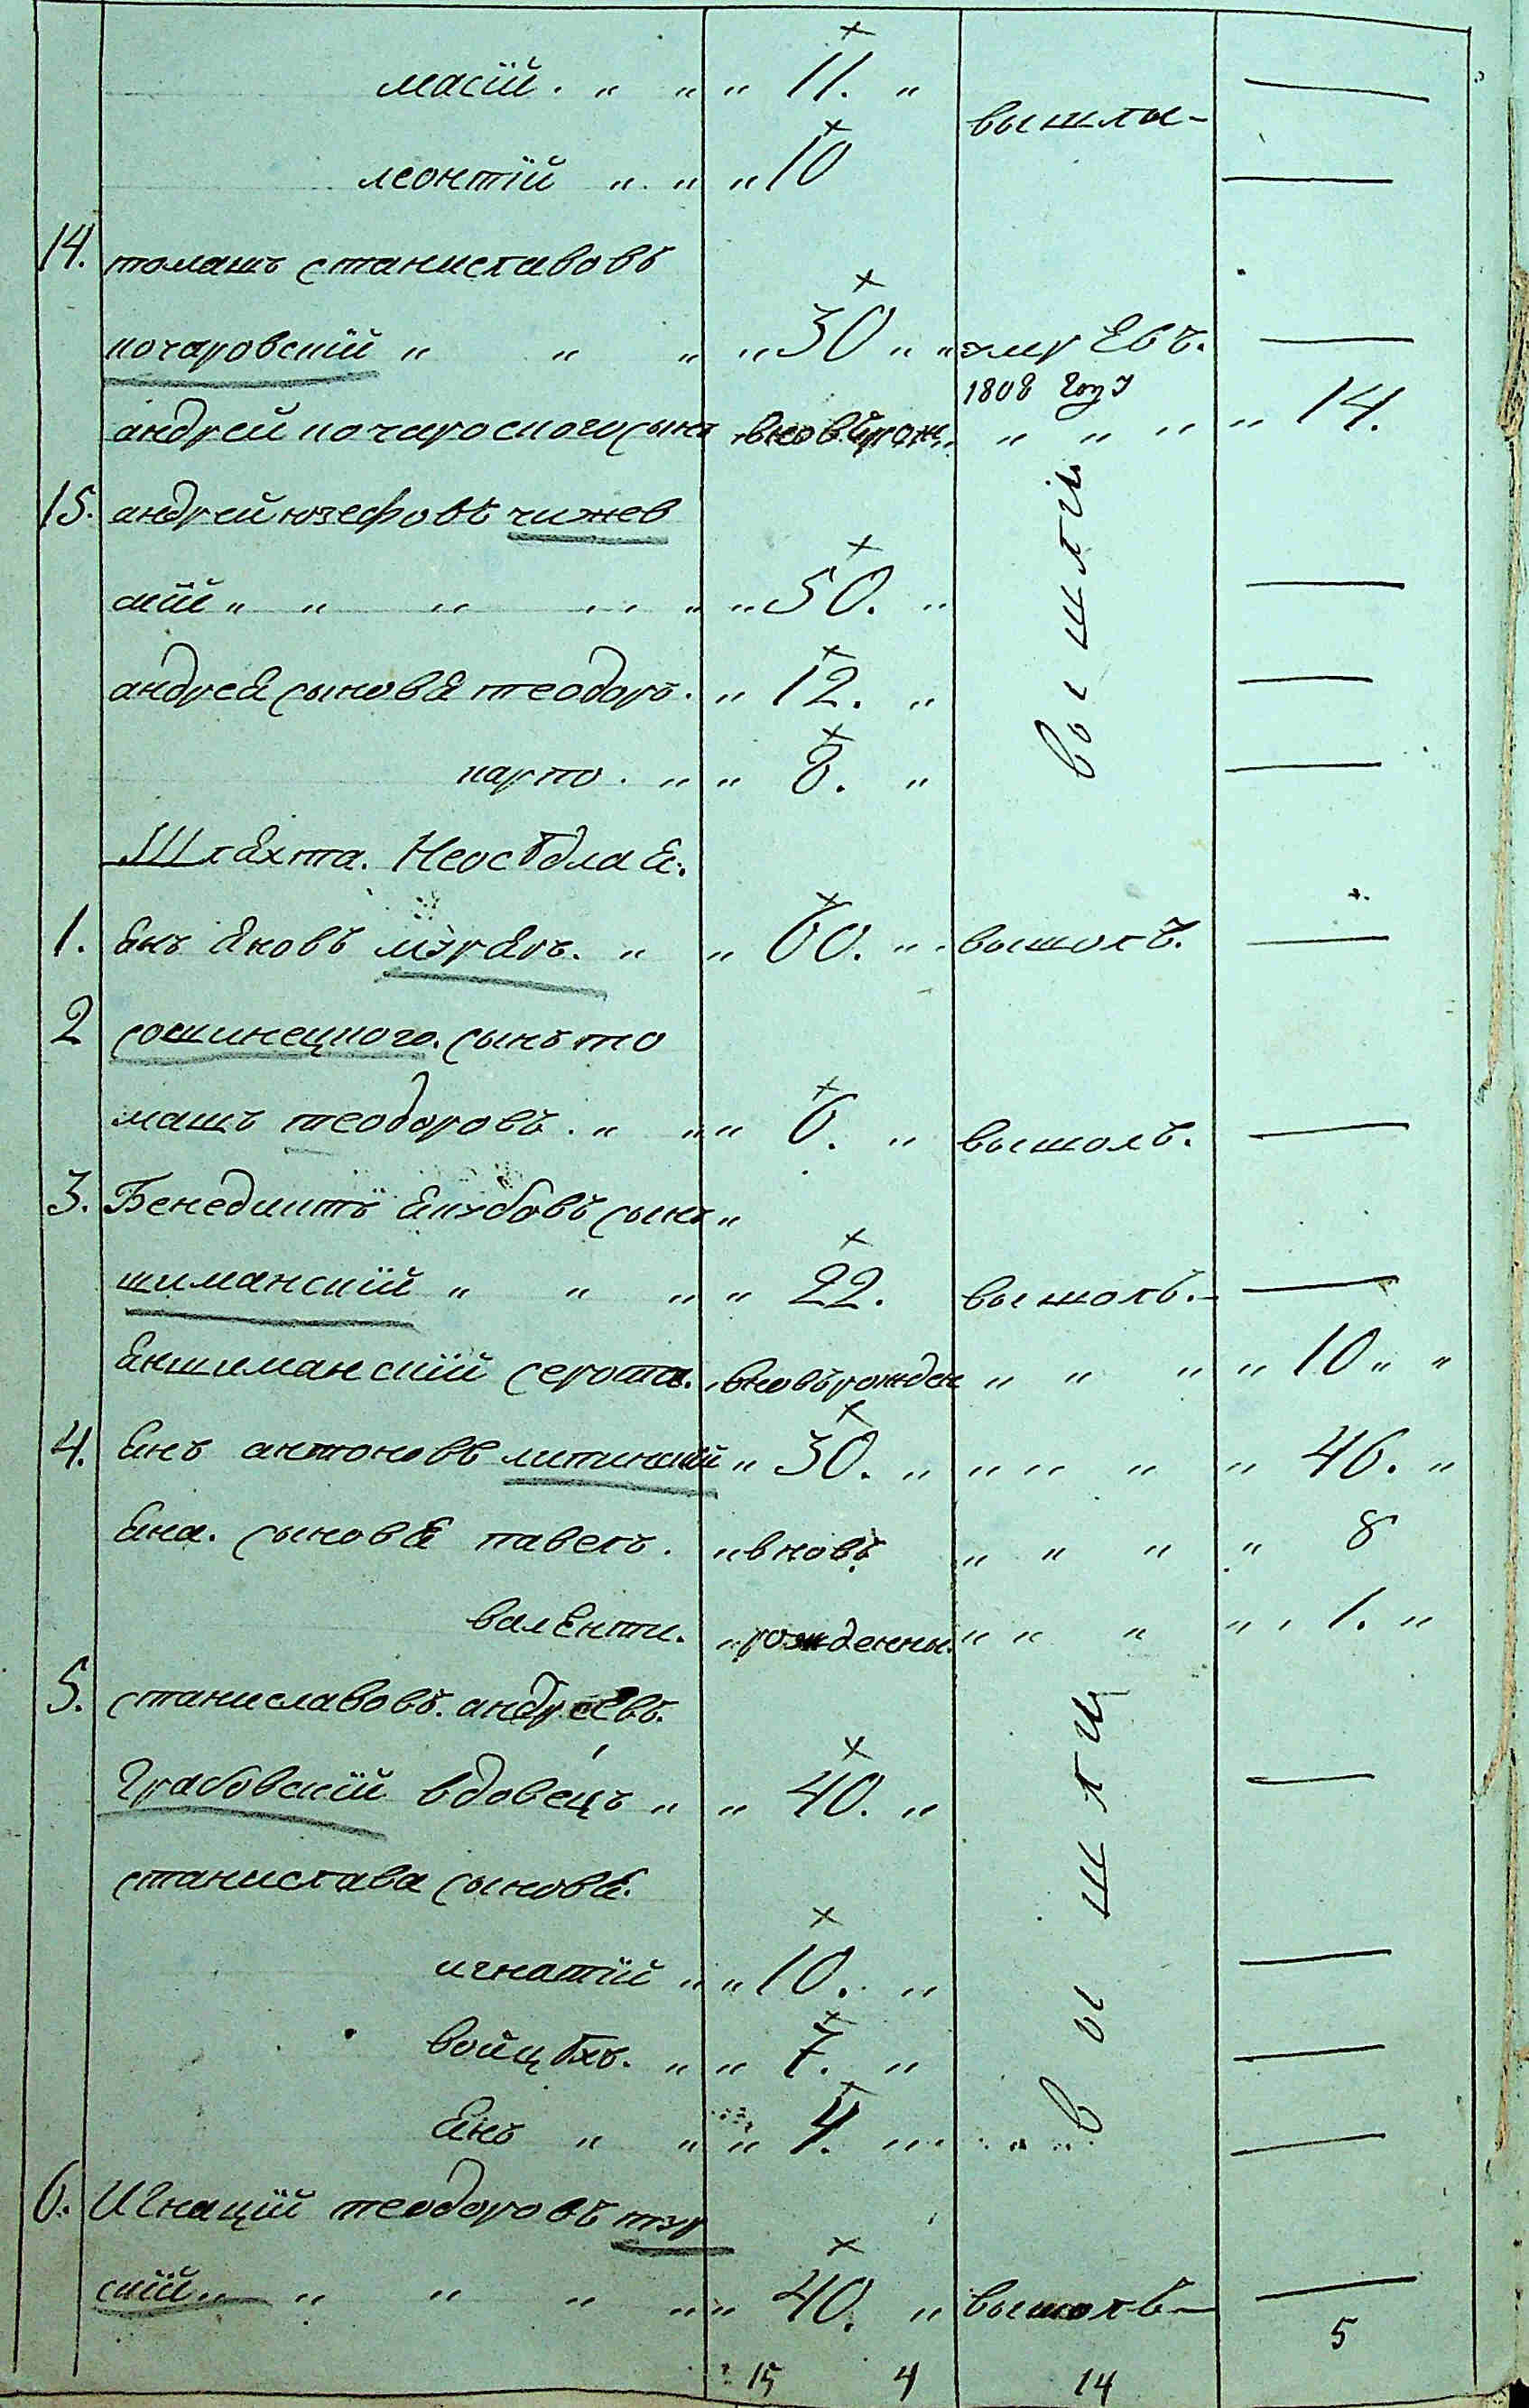 масій. „ „ „ 11. „ вышли- —
леонтій „ „ „ 10 —
14. томашъ станиславовъ
кочаровскій „ „ „ „ 30 „ „ умрЕвъ. —
1808 году
андрей кочароского сынъ „вновъ рож. „ „ „ „ 14.
15. андрей юзефовъ чижев
скій „ „ „ „ „ „ 50. „ —
андрея сыновя теодоръ. „ 12. „ вышлій —
карпо. „ „ 8. „ —
Шляхта. Неосѣдлая.
1. янъ яновъ мэряръ. „ „ 60. „ „ вышолъ. —
2 сошинецкого. сынъ то
машъ теодоровъ. „ „ „ 6. „ вышолъ. —
3. Бенедиктъ якубовъ сынъ „
шиманскій „ „ „ „ 22. вышолъ. —
яншиманскій серота. „вновърожден „ „ „ „ 10 „ „
4. янъ антоновъ литинскій „ 30. „ „ „ „ „ 46. „
яна. сыновя павелъ. „вновъ „ „ „ „ 8
валЕнти. „рожденны „ „ „ „ „ 1. „
5. станиславовъ. андреевъ.
Грабовскій вдовецъ „ „ 40. „ —
станислава сыновя.
игнатій „ „ 10. „ вышли —
войцѣхъ. „ „ 7. „ —
янъ „ „ „ 4. „ —
6. Игнацій теодоровъ тэр
скій „ „ „ „ „ „ 40. „ вышолъ —
5
15 4 14